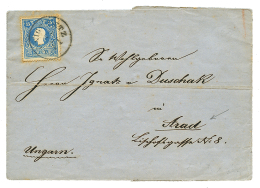 Sr Wohlgeboren
Herrn Ignatz Duschak
in
Arad
No. 8.
Ungarn